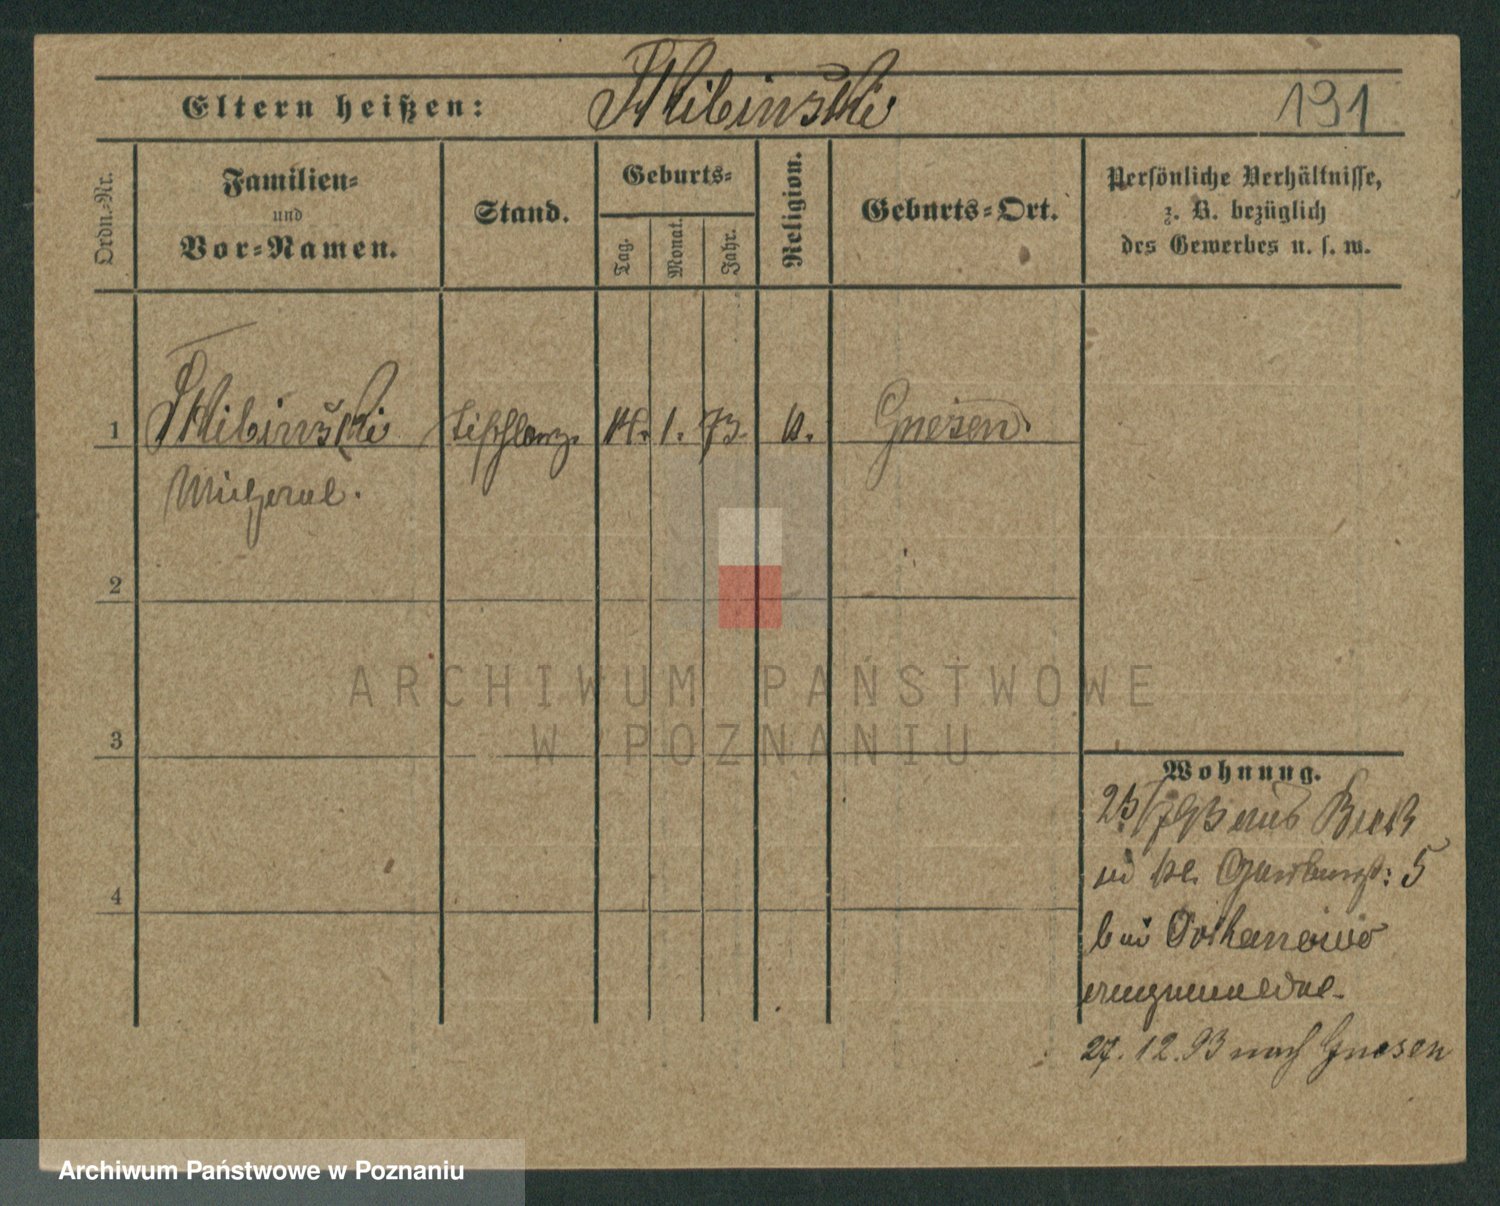 Eltern heißen: Skibinski 191
Ordn.-Nr.
Familien-
und
Vor-Namen.
Stand.
Geburts-
Tag.
Monat.
Jahr.
Religion.
Geburts-Ort.
Persönliche Verhältnisse,
z. B. bezüglich
des Gewerbes u. s. w.
1 Skibinski 1. 73. k. Gnesen.
Michael.
2
ARCHIWUM PAŃSTWOWE
W POZNANIU
3
Wohnung.
25/7 93 aus
5
bei
angemeldet.
4
27.12.93 nach Gnesen
Archiwum Państwowe w Poznaniu